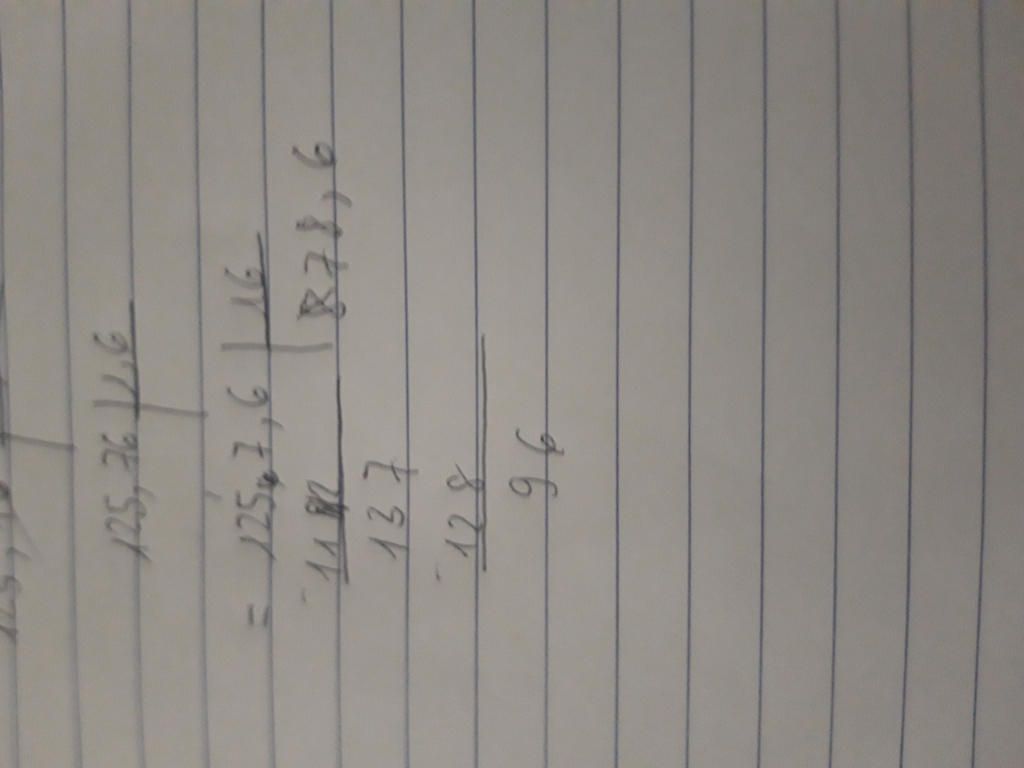 125,76 | 1,6
= 1257,6 | 16
- 112 | 78,6
137
- 128
96